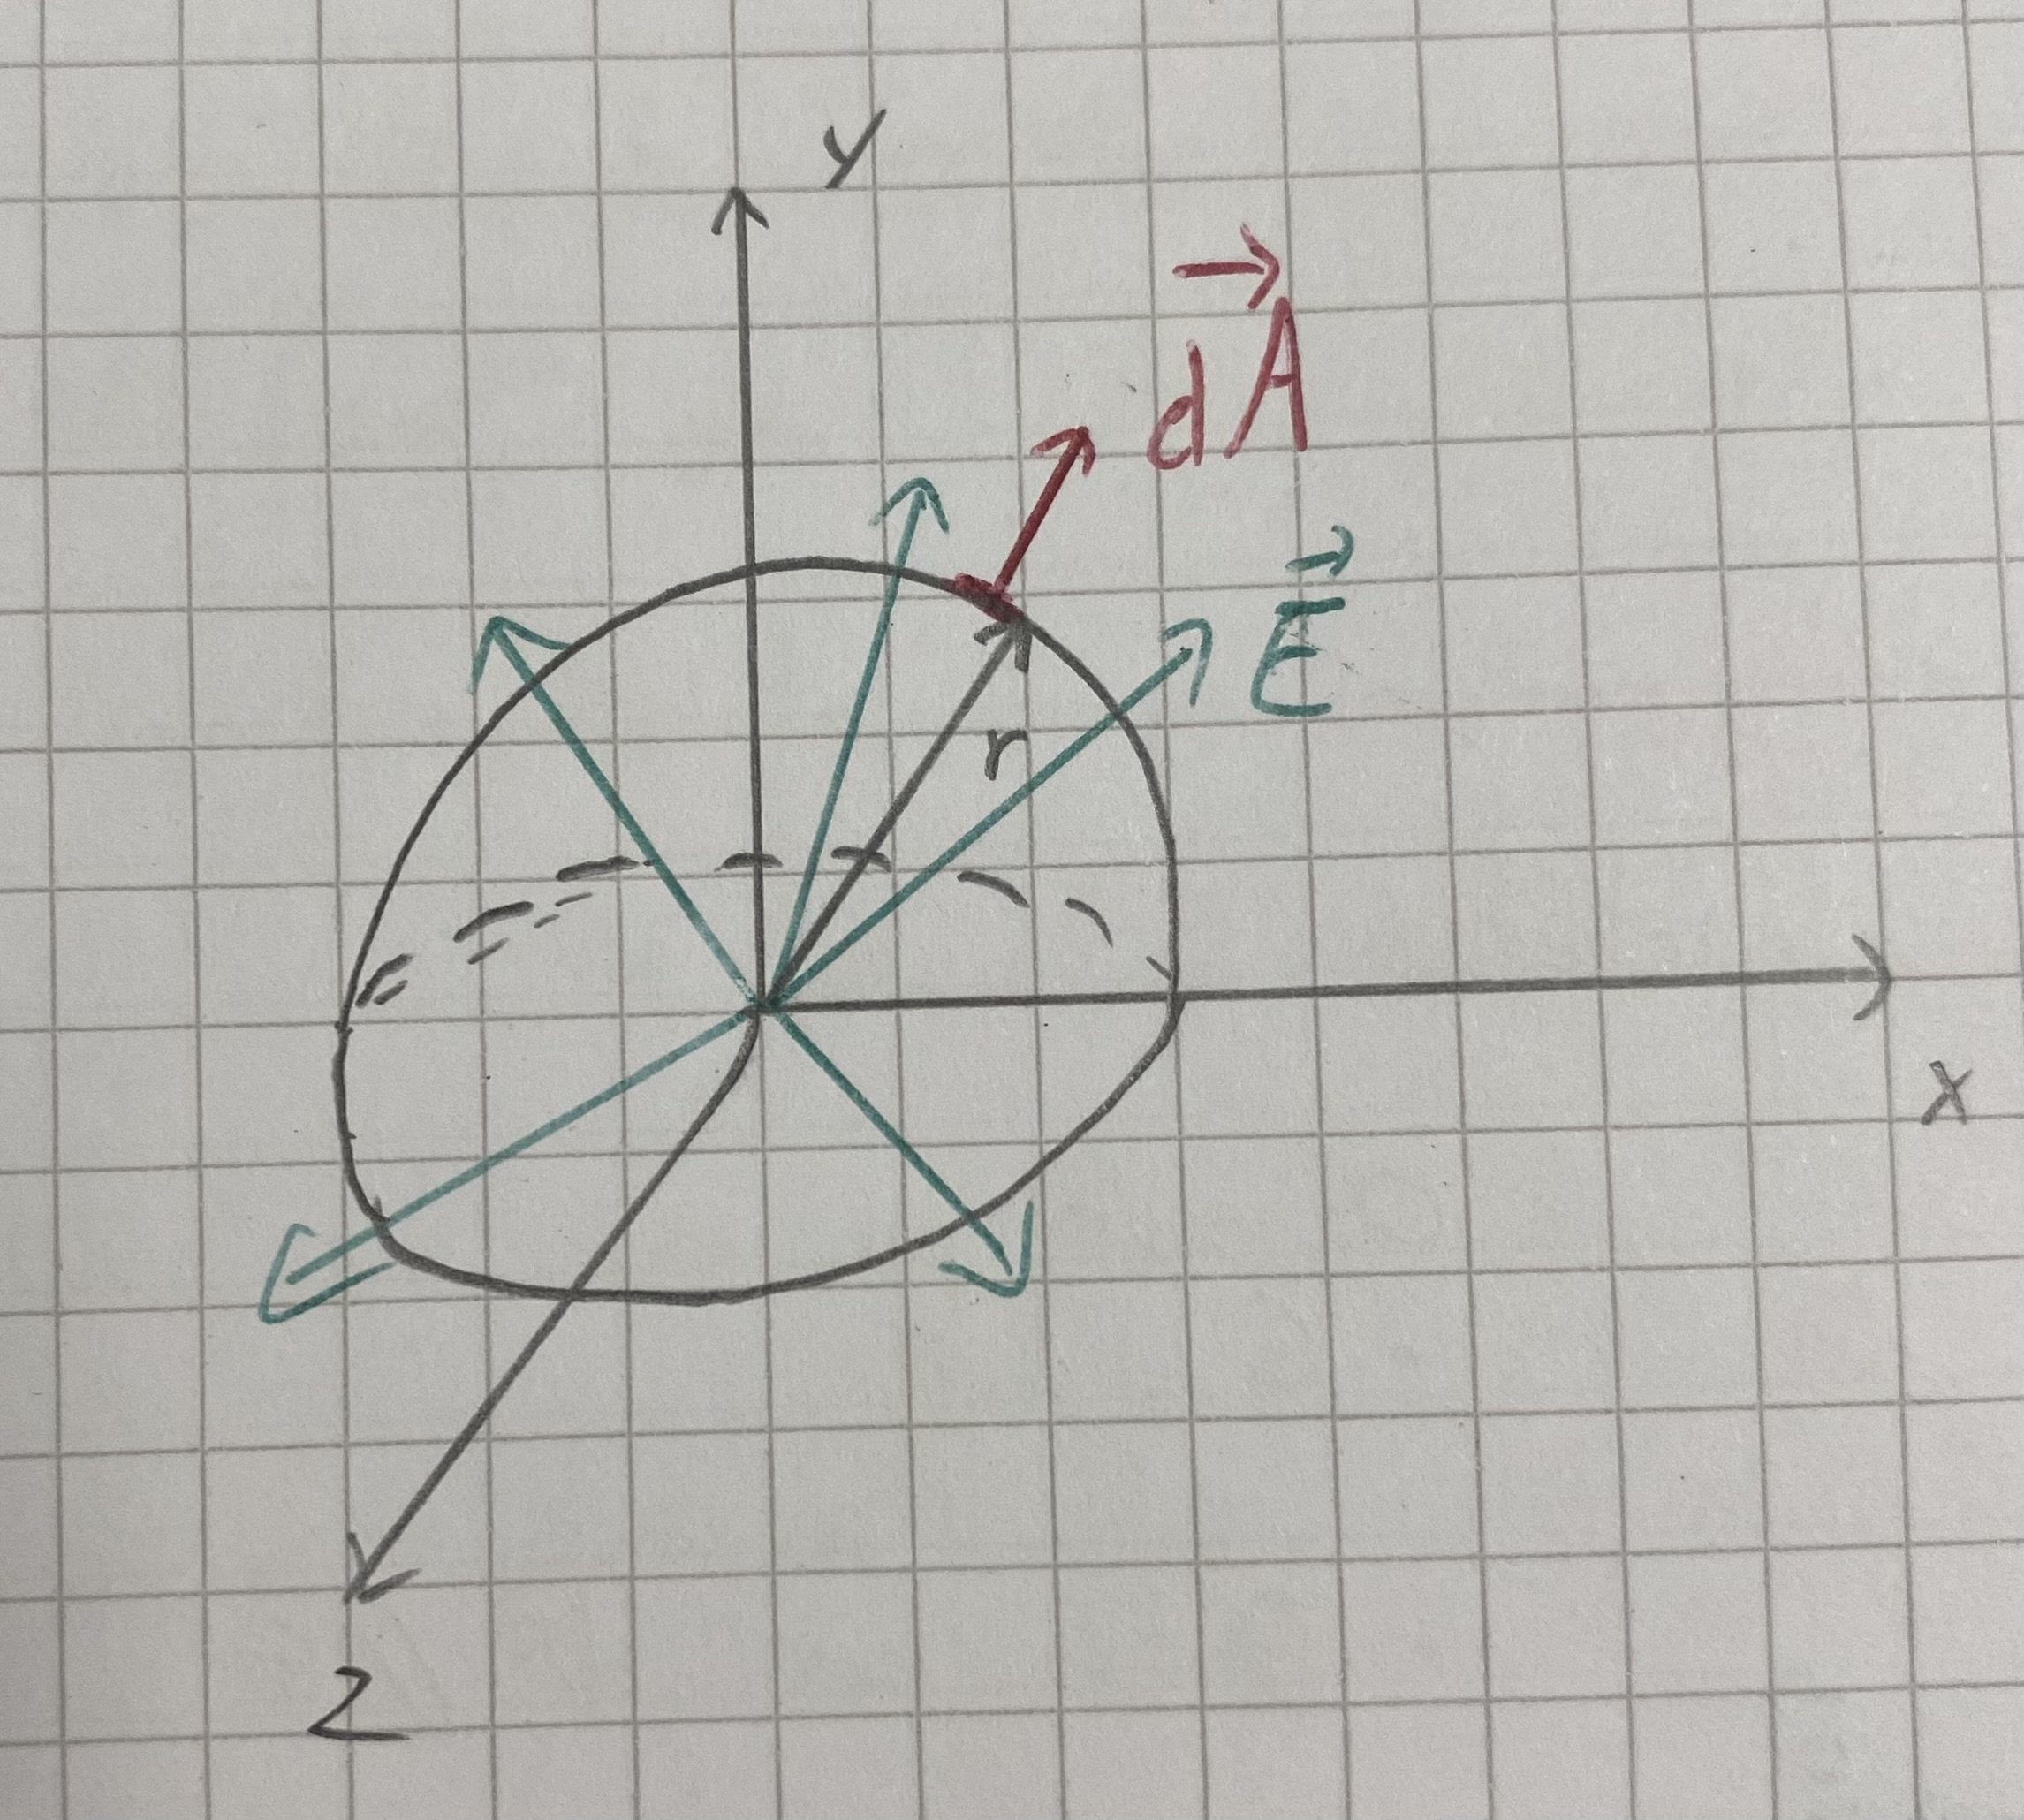 y
dA⃗
E⃗
r
x
z